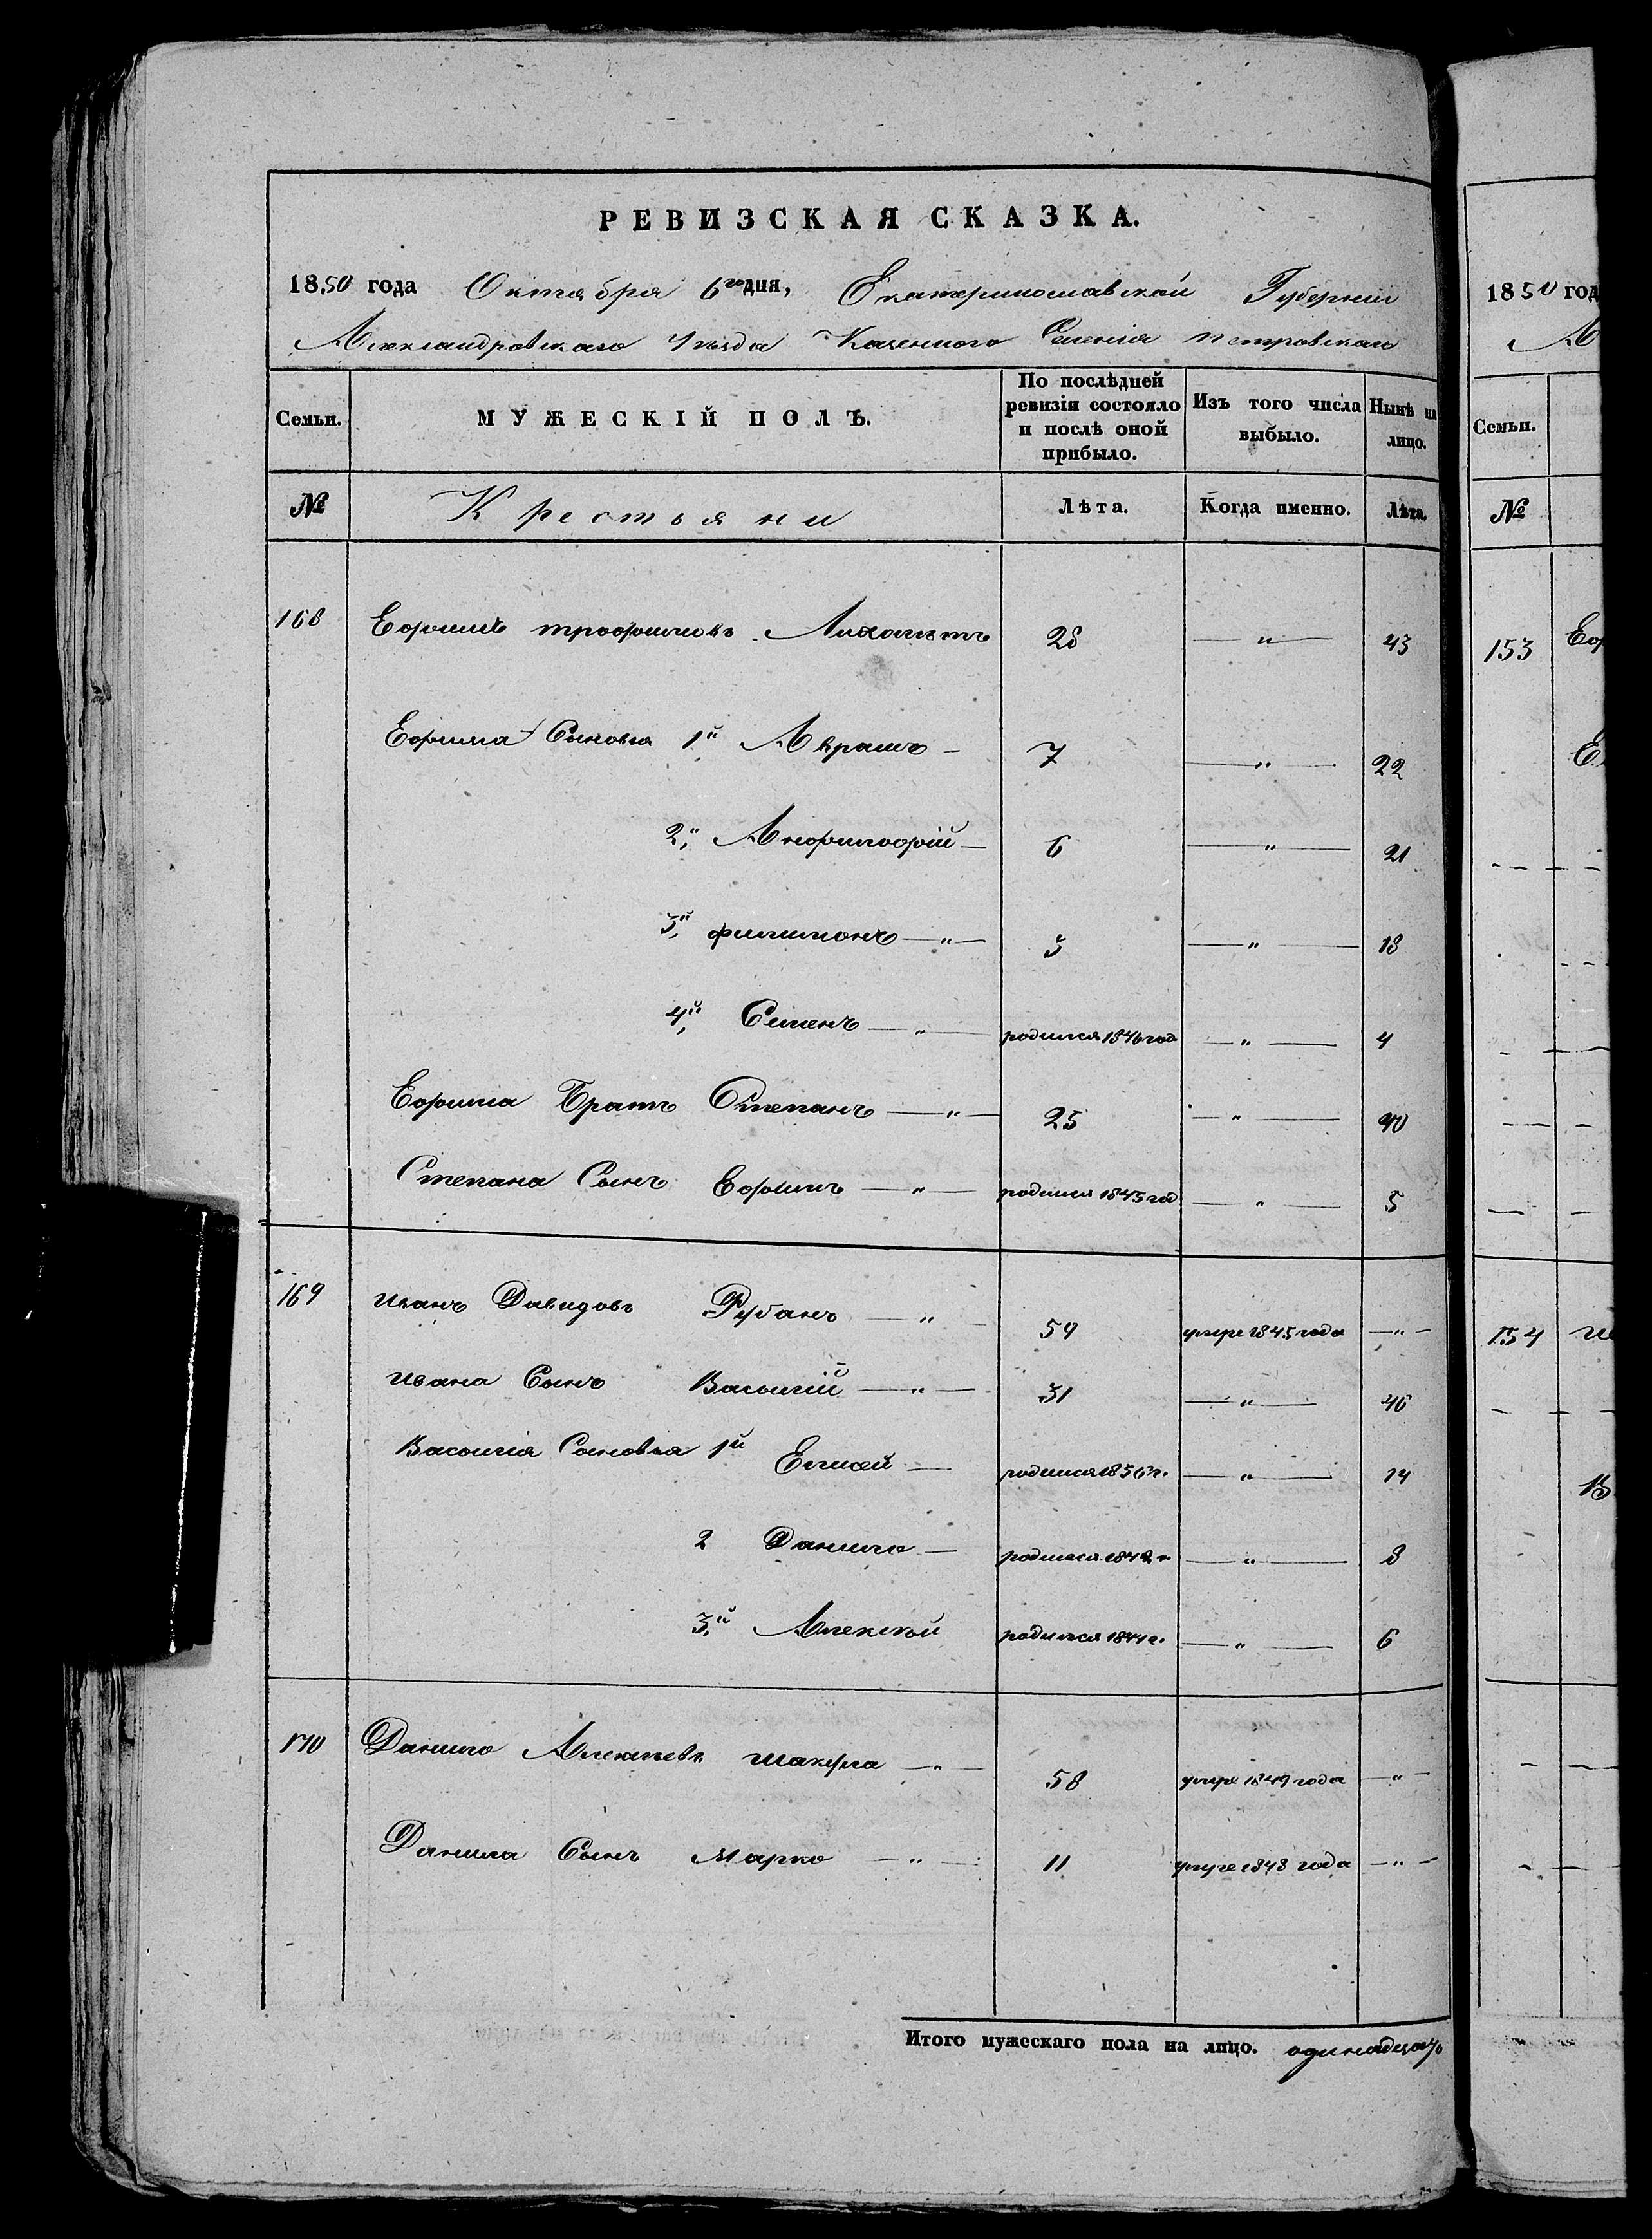 РЕВИЗСКАЯ СКАЗКА.
1850 года Октября 6го дня, Екатеринославской Губернии
Александровскаго Уезда Казенного Селения Петровскаго
Семьи. МУЖЕСКІЙ ПОЛЪ. По послѣдней ревизіи состояло и послѣ оной прибыло. Изъ того числа выбыло. Нынѣ на лицо.
№ Крестьяни Лѣта. Когда именно. Лѣта.
168 Ефимъ трофимовъ 28 — " — 43
Ефима Сыновья 1й Аврамъ — 7 — " — 22
2й — 6 — " — 21
3й филимонъ — " — 3 — " — 18
4й Семенъ — " — родился 1846 год — " — 4
Ефима Братъ Степанъ — " — 25 — " — 40
Степана Сынъ Ефимъ — " — родился 1845 год — " — 5
169 иванъ Давидовъ Рубанъ — " — 59 умре 1845 года — " —
ивана Сынъ Василій — " — 31 — " — 46
Василія Сыновья 1й Елисей — родился 1836 г. — " — 14
2 Данило — родился 1842 г — " — 8
3й Алексей родился 1844 г. — " — 6
170 Данило Алексеевъ шакула — " — 58 умре 1849 года — " —
Данила Сынъ Марко — " — 11 умре 1848 года — " —
Итого мужескаго пола на лицо. одинадцать
1850 год
А
Семьи.
№
153 Еф
Е
154 и
В